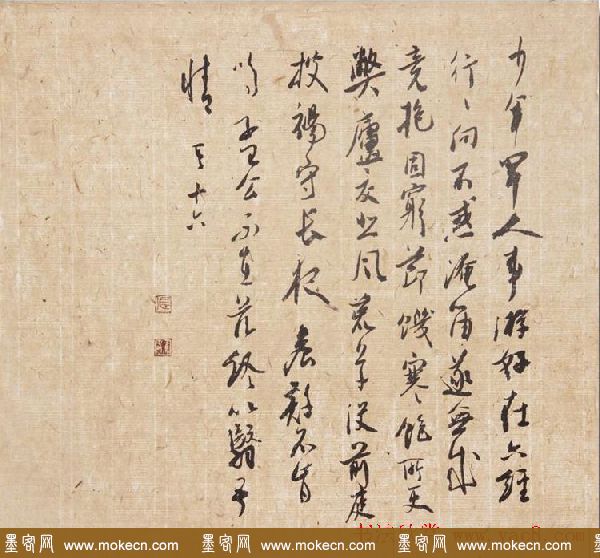 少年罕人事游好在六經
行〻向不惑淹留遂無成
竟抱固窮節饑寒飽所更
弊廬交悲風荒草沒前庭
披褐守長夜晨雞不肯
鳴孟公不在茲終以翳吾
情 其十六
墨客网 www.mokecn.com 墨客网 www.mokecn.com 墨客网 www.mokecn.com